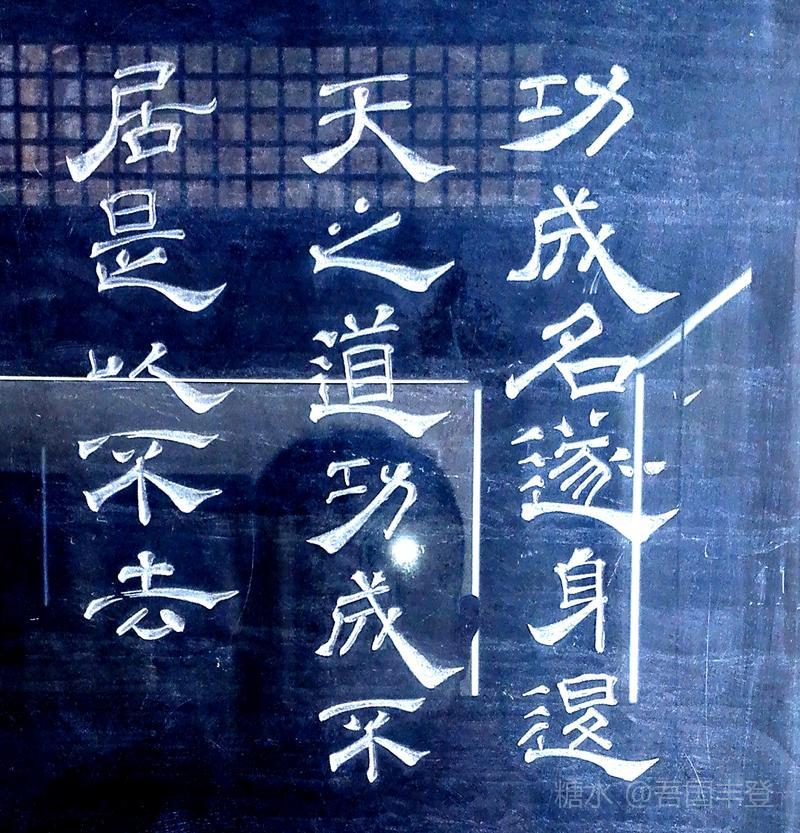 功成名遂身退
天之道功成不
居是以不去
糖水 @吾国丰登